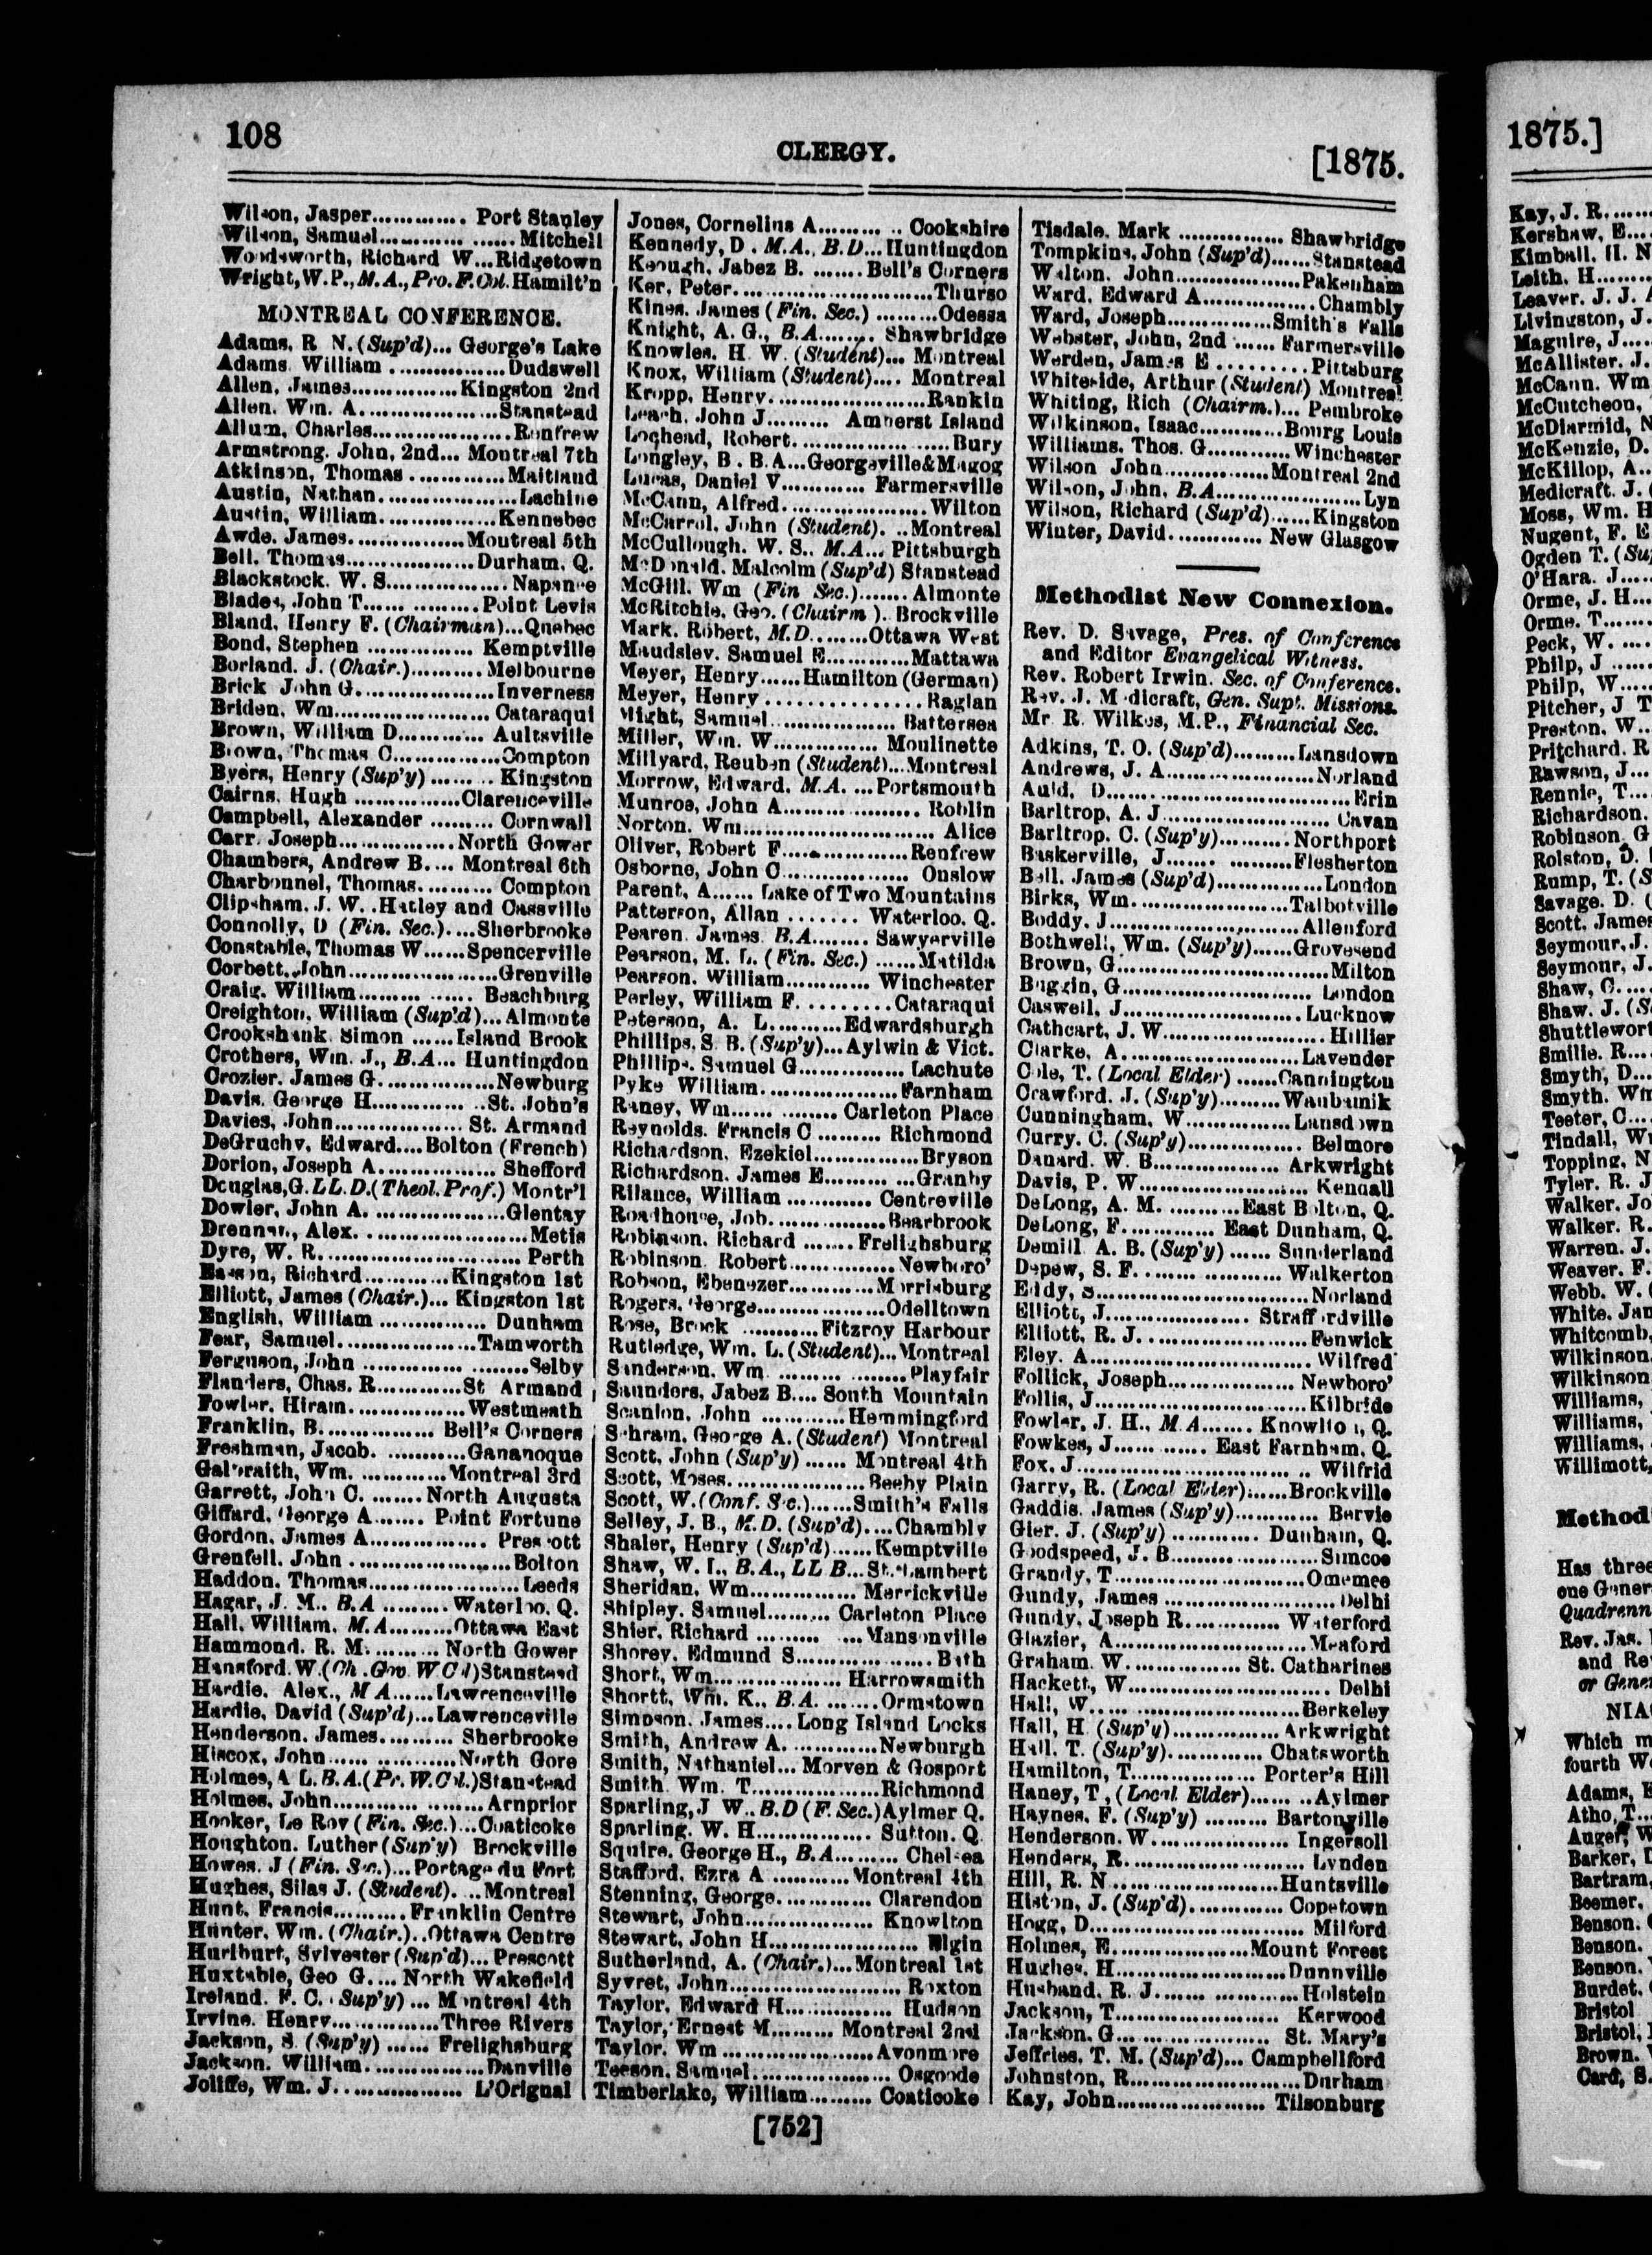 108
CLERGY.
[1875.
Wilson, Jasper............. Port Stanley
Wilson, Samuel.................. Mitchell
Woodsworth, Richard W...Ridgetown
Wright, W.P., M.A., Pro. F. Col. Hamilt'n
MONTREAL CONFERENCE.
Adams, R N. (Sup'd)... George's Lake
Adams William ................ Dudswell
Allen, James...............Kingston 2nd
Allen, Wm. A...................Stanstead
Allum, Charles...................Renfrew
Armstrong, John, 2nd... Montreal 7th
Atkinson, Thomas ............. Maitland
Austin, Nathan...................Lachine
Austin, William................Kennebec
Awde, James................Montreal 5th
Bell, Thomas..................Durham, Q.
Blackstock, W. S.................Napanee
Blades, John T................Point Levis
Bland, Henry F. (Chairman)...Quebec
Bond, Stephen ............... Kemptville
Borland, J. (Chair.)..........Melbourne
Brick John G...................Inverness
Briden, Wm...................... Cataraqui
Brown, William D............ Aultsville
Brown, Thomas C...............Compton
Byers, Henry (Sup'y) ........ Kingston
Cairns, Hugh ...............Clarenceville
Campbell, Alexander ......... Cornwall
Carr, Joseph................North Gower
Chambers, Andrew B.... Montreal 6th
Charbonnel, Thomas........... Compton
Clipsham, J. W. .Hatley and Cassville
Connolly, D (Fin. Sec.)....Sherbrooke
Constable, Thomas W......Spencerville
Corbett, John.....................Grenville
Craig, William................ Beachburg
Creighton, William (Sup'd)... Almonte
Crookshank Simon ......Island Brook
Crothers, Wm. J., B.A... Huntingdon
Crozier, James G................Newburg
Davis, George H...............St. John's
Davies, John...................St. Armand
DeGruchy, Edward....Bolton (French)
Dorion, Joseph A................ Shefford
Douglas, G. LL.D. (Theol. Prof.) Montr'l
Dowler, John A. ..................Glentay
Drennan, Alex........................Metis
Dyre, W. R.............................Perth
Eason, Richard...........Kingston 1st
Elliott, James (Chair.)... Kingston 1st
English, William ............... Dunham
Fear, Samuel....................Tamworth
Ferguson, John .....................Selby
Flanders, Chas. R............St Armand
Fowler, Hiram................Westmeath
Franklin, B................ Bell's Corners
Freshman, Jacob. ...........Gananoque
Galbraith, Wm. ............Montreal 3rd
Garrett, John C. .......North Augusta
Giffard, George A....... Point Fortune
Gordon, James A................ Prescott
Grenfell, John .......................Bolton
Haddon, Thomas......................Leeds
Hagar, J. M., B.A .........Waterloo, Q.
Hall, William, M.A.........Ottawa East
Hammond, R. M..........North Gower
Hansford, W. (Ch. Gov. W Col) Stanstead
Hardie, Alex., M A......Lawrenceville
Hardie, David (Sup'd)...Lawrenceville
Henderson, James.......... Sherbrooke
Hiscox, John..................North Gore
Holmes, A L. B.A. (Pr. W. Col.) Stanstead
Holmes, John.....................Arnprior
Hooker, Le Roy (Fin. Sec.)...Coaticoke
Houghton, Luther (Sup'y) Brockville
Howes, J (Fin. Sec.)...Portage du Fort
Hughes, Silas J. (Student). ..Montreal
Hunt, Francis..........Franklin Centre
Hunter, Wm. (Chair.)..Ottawa Centre
Hurlburt, Sylvester (Sup'd)... Prescott
Huxtable, Geo G.... North Wakefield
Ireland, F. C. (Sup'y) ... Montreal 4th
Irvine, Henry...............Three Rivers
Jackson, S. (Sup'y) ...... Frelighsburg
Jackson, William..................Danville
Joliffe, Wm. J.................. L'Orignal
Jones, Cornelius A............ Cookshire
Kennedy, D. M.A., B.D...Huntingdon
Keough, Jabez B. .......Bell's Corners
Ker, Peter.............................Thurso
Kines, James (Fin. Sec.) .........Odessa
Knight, A. G., B.A........ Shawbridge
Knowles, H W. (Student)... Montreal
Knox, William (Student).... Montreal
Kropp, Henry.......................Rankin
Leach, John J......... Amherst Island
Lochead, Robert......................Bury
Longley, B. B.A...Georgeville&Magog
Lucas, Daniel V............ Farmersville
McCann, Alfred.....................Wilton
McCarrol, John (Student). ..Montreal
McCullough, W. S., M.A... Pittsburgh
McDonald, Malcolm (Sup'd) Stanstead
McGill, Wm (Fin Sec.).......Almonte
McRitchie, Geo. (Chairm). Brockville
Mark, Robert, M.D........Ottawa West
Maudsley, Samuel E............Mattawa
Meyer, Henry......Hamilton (German)
Meyer, Henry ................... Raglan
Might, Samuel.................. Battersea
Miller, Wm. W............... Moulinette
Millyard, Reuben (Student)...Montreal
Morrow, Edward, M.A. ...Portsmouth
Munroe, John A.................... Roblin
Norton, Wm............................ Alice
Oliver, Robert F..................Renfrew
Osborne, John C.................. Onslow
Parent, A...... Lake of Two Mountains
Patterson, Allan ....... Waterloo, Q.
Pearen, James, B.A........ Sawyerville
Pearson, M. L. (Fin. Sec.) ......Matilda
Pearson, William............ Winchester
Perley, William F. .........Cataraqui
Peterson, A. L..........Edwardsburgh
Phillips, S. B. (Sup'y)...Aylwin & Vict.
Phillips, Samuel G............... Lachute
Pyke William....................Farnham
Raney, Wm.............. Carleton Place
Reynolds, Francis C .......... Richmond
Richardson, Ezekiel...............Bryson
Richardson, James E............Granby
Rilance, William ............ Centreville
Roadhouse, Job.................Bearbrook
Robinson, Richard .......Frelighsburg
Robinson Robert...............Newboro'
Robson, Ebenezer............Morrisburg
Rogers, George..................Odelltown
Rose, Brock ...........Fitzroy Harbour
Rutledge, Wm. L. (Student)...Montreal
Sanderson, Wm. ..................Playfair
Saunders, Jabez B.... South Mountain
Scanlon, John ............Hemmingford
Schram, George A. (Student) Montreal
Scott, John (Sup'y) ...... Montreal 4th
Scott, Moses.................... Beeby Plain
Scott, W. (Conf. Sec.)......Smith's Falls
Selley, J. B., M.D. (Sup'd)....Chambly
Shaler, Henry (Sup'd)......Kemptville
Shaw, W. I., B.A., LL B...St. Lambert
Sheridan, Wm............... Merrickville
Shipley, Samuel......... Carleton Place
Shier, Richard ............Mansonville
Shorey, Edmund S...................Bath
Short, Wm.................. Harrowsmith
Shortt, Wm. K., B.A. .......Ormstown
Simpson, James.... Long Island Locks
Smith, Andrew A. ............Newburgh
Smith, Nathaniel... Morven & Gosport
Smith Wm. T..................Richmond
Sparling, J W., B.D (F. Sec.) Aylmer Q.
Sparling, W. H................ Sutton, Q.
Squire, George H., B.A......... Chelsea
Stafford, Ezra A ...........Montreal 4th
Stenning, George............. Clarendon
Stewart, John.................. Knowlton
Stewart, John H..................... Elgin
Sutherland, A. (Chair.)...Montreal 1st
Syvret, John......................... Roxton
Taylor, Edward H............... Hudson
Taylor, Ernest M......... Montreal 2nd
Taylor, Wm .....................Avonmore
Teeson, Samuel.................... Osgoode
Timberlake, William......... Coaticoke
Tisdale, Mark ............... Shawbridge
Tompkins, John (Sup'd)......Stanstead
Walton, John..................Pakenham
Ward, Edward A................Chambly
Ward, Joseph...............Smith's Falls
Webster, John, 2nd ...... Farmersville
Werden, James E ..........Pittsburg
Whiteside, Arthur (Student) Montreal
Whiting, Rich (Chairm.)... Pembroke
Wilkinson, Isaac............Bourg Louis
Williams, Thos. G............Winchester
Wilson John...............Montreal 2nd
Wilson, John, B.A.....................Lyn
Wilson, Richard (Sup'd)......Kingston
Winter, David............. New Glasgow
Methodist New Connexion.
Rev. D. Savage, Pres. of Conference
and Editor Evangelical Witness.
Rev. Robert Irwin, Sec. of Conference.
Rev. J. Medicraft, Gen. Supt. Missions.
Mr. R. Wilkes, M.P., Financial Sec.
Adkins, T. O. (Sup'd).........Lansdown
Andrews, J. A.....................Norland
Auld, D..................................Erin
Barltrop, A. J........................Cavan
Barltrop, C. (Sup'y)..........Northport
Baskerville, J.................Flesherton
Bell, James (Sup'd)...............London
Birks, Wm.......................Talbotville
Boddy, J...........................Allenford
Bothwell, Wm. (Sup'y)......Grovesend
Brown, G..............................Milton
Buggin, G........................... London
Caswell, J......................... Lucknow
Cathcart, J. W...................... Hillier
Clarke, A.......................... Lavender
Cole, T. (Local Elder) ......Cannington
Crawford, J. (Sup'y).........Waubunik
Cunningham, W...............Lansdown
Curry, C. (Sup'y)................ Belmore
Danard, W. B.................. Arkwright
Davis, P. W........................ Kendall
DeLong, A. M. ..........East Bolton, Q.
DeLong, F. ............ East Dunham, Q.
Demill A. B. (Sup'y) ...... Sunderland
Depew, S. F. ................... Walkerton
Eddy, S..............................Norland
Elliott, J..................... Straffordville
Elliott, R. J........................Fenwick
Eley, A...............................Wilfred
Follick, Joseph.................. Newboro'
Follis, J.............................Kilbride
Fowler, J. H., M A....... Knowlton, Q.
Fowkes, J............. East Farnham, Q.
Fox, J................................ Wilfrid
Garry, R. (Local Elder)......Brockville
Gaddis, James (Sup'y)............ Bervie
Gier, J. (Sup'y) ............ Dunham, Q.
Goodspeed, J. B.....................Simcoe
Grandy, T...........................Omemee
Gundy, James ........................ Delhi
Gundy, Joseph R............. Waterford
Glazier, A..........................Meaford
Graham, W................ St. Catharines
Hackett, W............................ Delhi
Hall, W..............................Berkeley
Hall, H (Sup'y)...............Arkwright
Hall, T. (Sup'y)............. Chatsworth
Hamilton, T.................. Porter's Hill
Haney, T, (Local Elder).........Aylmer
Haynes, F. (Sup'y) ......... Bartonville
Henderson, W................... Ingersoll
Henders, R......................... Lynden
Hill, R. N........................Huntsville
Histon, J. (Sup'd)............. Copetown
Hogg, D............................. Milford
Holmes, E...................Mount Forest
Hughes, H........................Dunnville
Husband, R. J................... Holstein
Jackson, T........................ Kerwood
Jackson, G...................... St. Mary's
Jeffries, T. M. (Sup'd)... Campbellford
Johnston, R........................Durham
Kay, John..................... Tilsonburg
[752]
1875.]
Kay, J. R.
Kershaw, E.
Kimball, H. N
Leith, H
Leaver, J. J.
Livingston, J.
Maguire, J.
McAllister, J.
McCann, Wm
McCutcheon,
McDiarmid, N
McKenzie, D.
McKillop, A.
Medicraft, J.
Moss, Wm. H
Nugent, F. E
Ogden T. (Su
O'Hara, J.
Orme, J. H
Orme, T.
Peck, W.
Philp, J
Philp, W
Pitcher, J T
Preston, W.
Pritchard, R
Rawson, J.
Rennie, T.
Richardson,
Robinson, G
Rolston, D.
Rump, T. (S
Savage, D. (
Scott, James
Seymour, J.
Seymour, J.
Shaw, C.
Shaw, J. (S
Shuttlewort
Smilie, R.
Smyth, D.
Smyth, Wm
Teeter, C.
Tindall, W
Topping, N
Tyler, R. J
Walker, Jo
Walker, R.
Warren, J.
Weaver, F.
Webb, W. (
White, Jan
Whitcomb,
Wilkinson,
Wilkinson
Williams,
Williams,
Williams,
Willimott,
Method
Has three
one Gener
Quadrenn
Rev. Jas.
and Re
or Gene
NIA
Which m
fourth We
Adams, E
Atho, T
Auger, W
Barker, D
Bartram,
Beemer,
Benson,
Benson,
Benson,
Burdet,
Bristol
Bristol,
Brown,
Card, S.